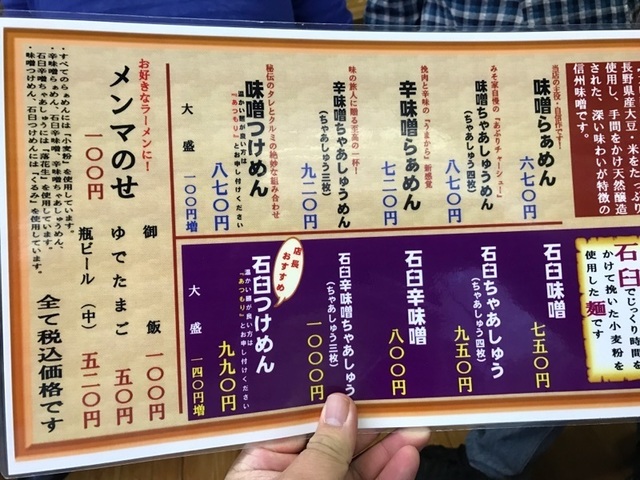 長野県産大豆・米をたっぷり
使用し、手間をかけ天然醸造
された、深い味わいが特徴の
信州味噌です。
当店の主役・自信作です!
味噌らぁめん
六七〇円
みそ家自慢の「あぶりチャーシュー」
味噌ちゃあしゅうめん
(ちゃあしゅう四枚)
八七〇円
挽肉と辛味の「うまから」新感覚
辛味噌らぁめん
七二〇円
味の旅人に贈る至高の一杯!
辛味噌ちゃあしゅうめん
(ちゃあしゅう三枚)
九二〇円
秘伝のタレとクルミの絶妙な組み合わせ
味噌つけめん
温かい麺が良い方は
「あつもり」とお申し付けください
八七〇円
大盛 一〇〇円増
石臼でじっくり時間を
かけて挽いた小麦粉を
使用した麺です
石臼味噌
七五〇円
石臼ちゃあしゅう
(ちゃあしゅう四枚)
九五〇円
石臼辛味噌
八〇〇円
石臼辛味噌ちゃあしゅう
(ちゃあしゅう三枚)
一〇〇〇円
店長
おすすめ
石臼つけめん
温かい麺が良い方は
「あつもり」とお申し付けください
九九〇円
大盛 一四〇円増
お好きなラーメンに!
メンマのせ
一〇〇円
御飯 一〇〇円
ゆでたまご 五〇円
瓶ビール(中) 五二〇円
・すべてのらぁめんには「小麦粉」を使用しています。
・辛味噌らぁめん、辛味噌ちゃあしゅうめん、
石臼辛味噌ちゃあしゅうには「落花生」を使用しています。
・味噌つけめん、石臼つけめんには「くるみ」を使用しています。
全て税込価格です